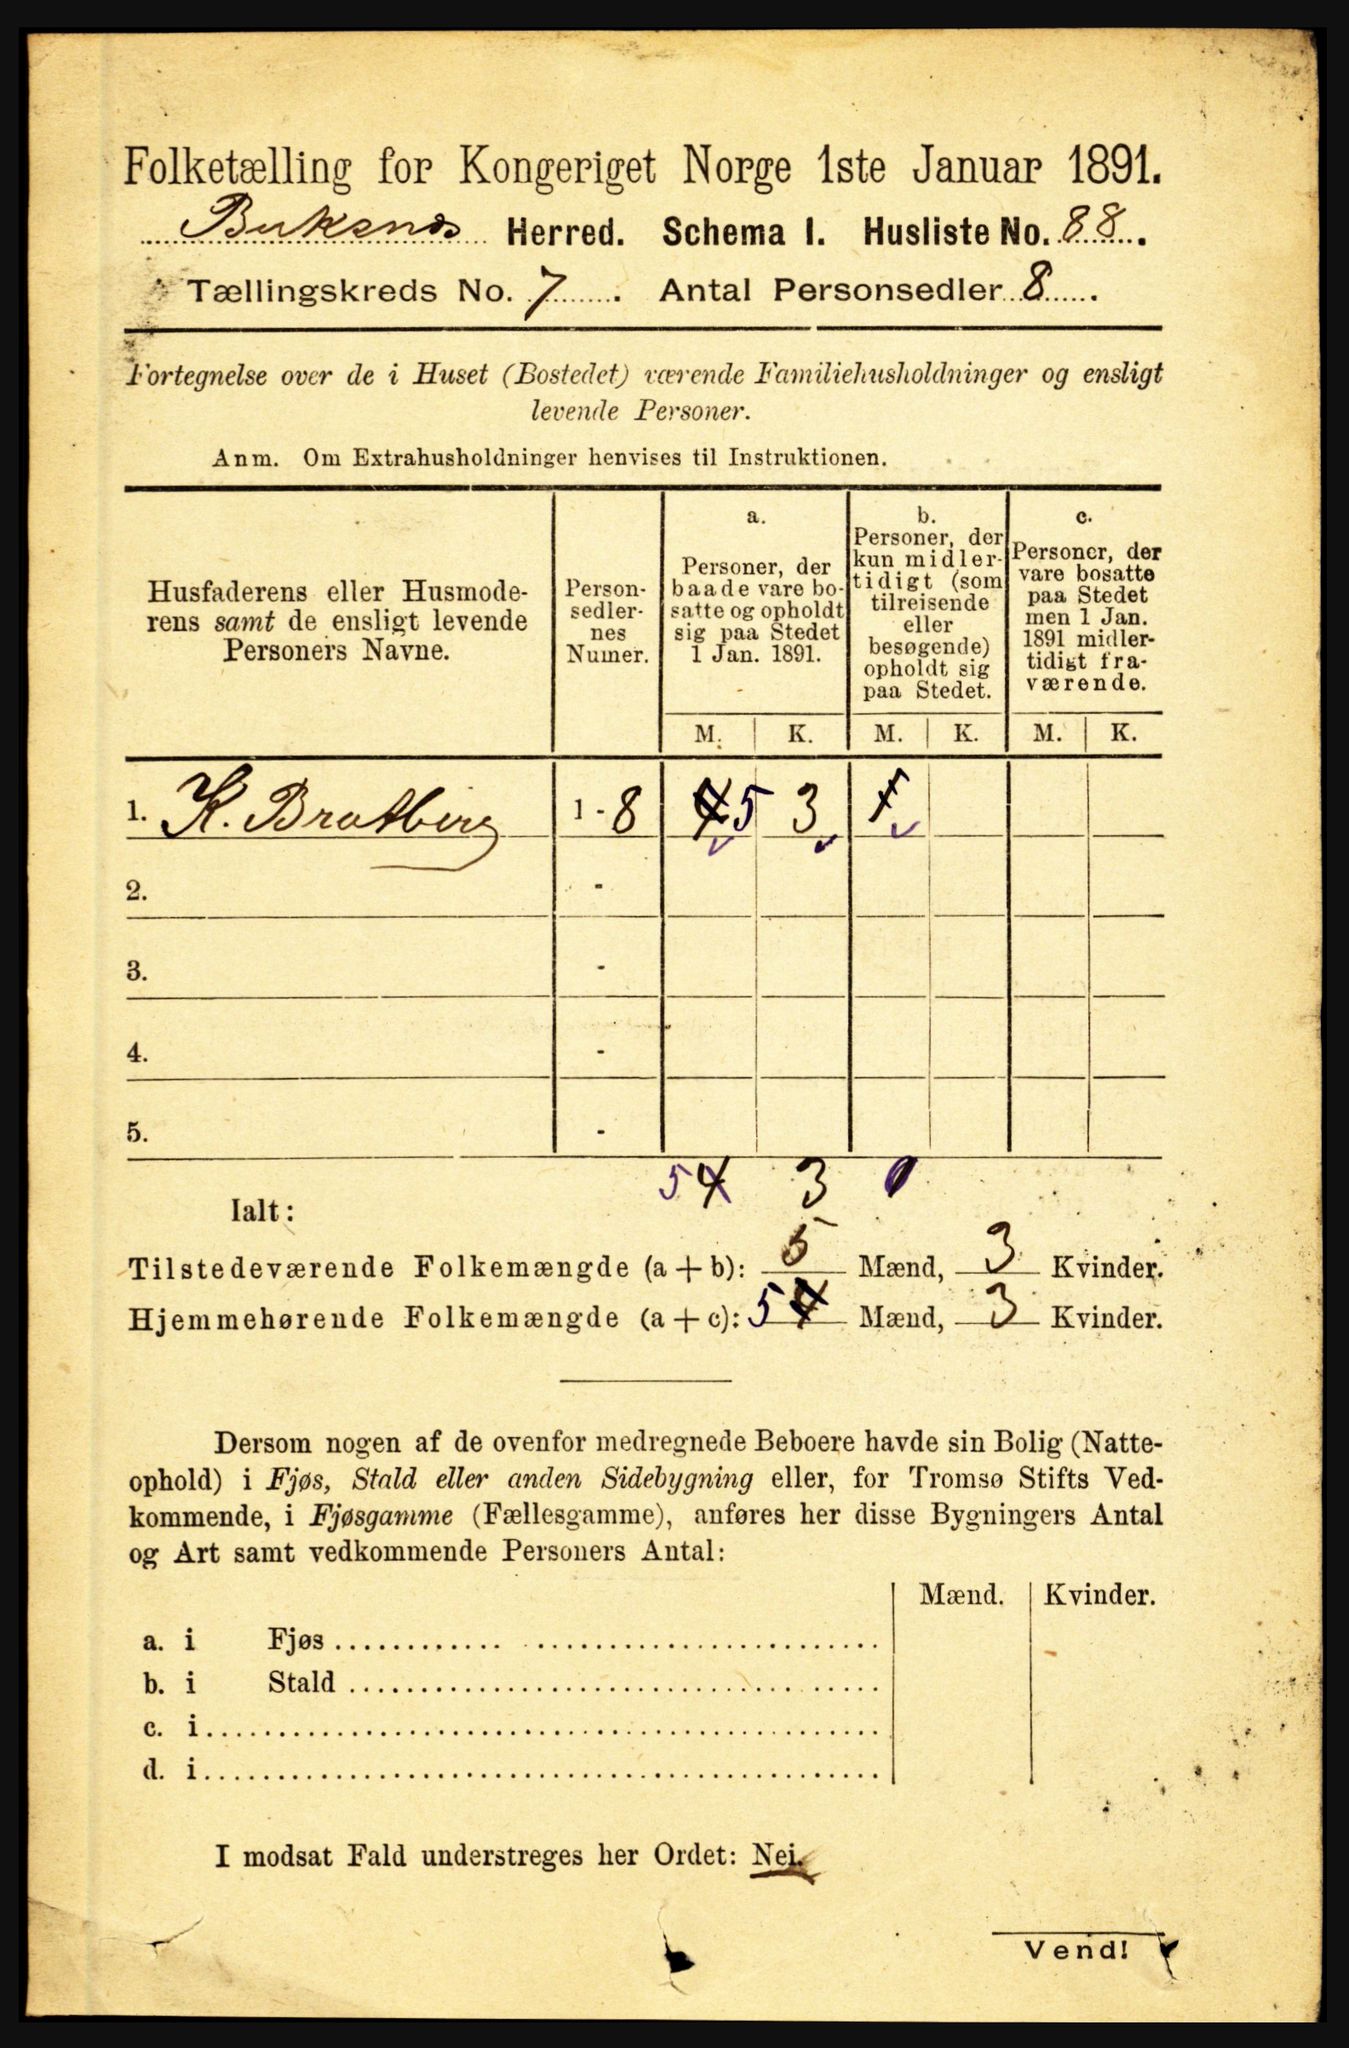 Folketælling for Kongeriget Norge 1ste Januar 1891.
Buksnæs Herred. Schema I. Husliste No. 88.
Tællingskreds No. 7. Antal Personsedler 8.
Fortegnelse over de i Huset (Bostedet) værende Familiehusholdninger og ensligt
levende Personer.
Anm. Om Extrahusholdninger henvises til Instruktionen.
Husfaderens eller Husmode-
rens samt de ensligt levende
Personers Navne.
Person-
sedler-
nes
Numer.
a.
Personer, der
baade vare bo-
satte og opholdt
sig paa Stedet
1 Jan. 1891.
b.
Personer, der
kun midler-
tidigt (som
tilreisende
eller
besøgende)
opholdt sig
paa Stedet.
c.
Personer, der
vare bosatte
paa Stedet
men 1 Jan.
1891 midler-
tidigt fra-
værende.
M. K. M. K. M. K.
1. K. Bratberg 1 - 8 4 5 3 1
2. -
3. -
4. -
5. -
5 4 3 0
Ialt:
Tilstedeværende Folkemængde (a + b): 5 Mænd, 3 Kvinder.
Hjemmehørende Folkemængde (a + c): 5 4 Mænd, 3 Kvinder.
Dersom nogen af de ovenfor medregnede Beboere havde sin Bolig (Natte-
ophold) i Fjøs, Stald eller anden Sidebygning eller, for Tromsø Stifts Ved-
kommende, i Fjøsgamme (Fællesgamme), anføres her disse Bygningers Antal
og Art samt vedkommende Personers Antal:
Mænd. Kvinder.
a. i Fjøs
b. i Stald
c. i
d. i
I modsat Fald understreges her Ordet: Nei.
Vend!